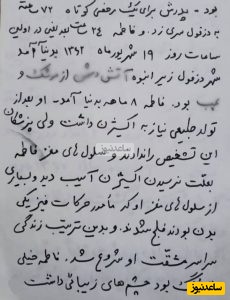 بود - پدرش برای یک مرخصی کوتاه ۷۲ ساعته
به دزفول سری زد. و فاطمه ۲۴ ساعت بعد یعنی در اولین
ساعات روز ۱۹ شهریور ماه ۱۳۶۲ بدنیا آمد
شهر دزفول زیر انبوه آتش دشمن از موشک و
بمب بود. فاطمه ۸ ماهه به دنیا آمد. او بعد از
تولد طبیعی نیاز به اکسیژن داشت ولی پزشکان
این تشخیص را ندادند و سلول های مغز فاطمه
بعلت نرسیدن اکسیژن آسیب دید و بسیاری
از سلول های مغز او که مأمور حرکات فیزیکی
بدن بودند فلج شدند. و بدین ترتیب زندگی
سراسر مشقت او شروع شد. فاطمه خیلی
بود چشم های زیبائی داشت
ساعدنیوز
ساعدنیوز